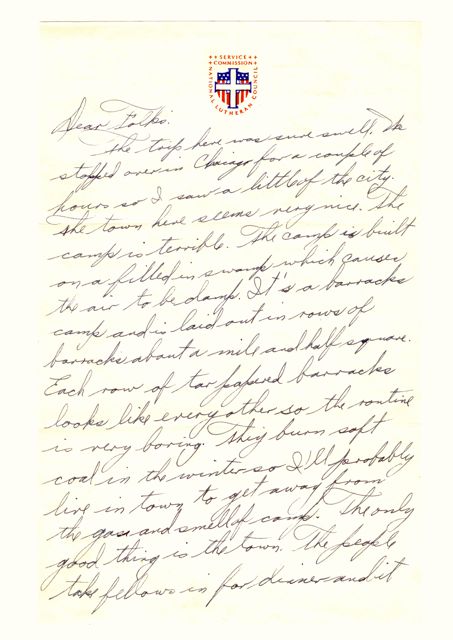 SERVICE
COMMISSION
NATIONAL LUTHERAN COUNCIL
Dear Folks:
The trip here was sure swell. We
stopped over in Chicago for a couple of
hours so I saw a little of the city.
The town here seems very nice. The
camp is terrible. The camp is built
on a filled in swamp which causes
the air to be damp. It's a barracks
camp and is laid out in rows of
barracks about a mile and half square.
Each row of tar papered barracks
looks like every other so the routine
is very boring. They burn soft
coal in the winter so I'll probably
live in town to get away from
the gas and smell of camp. The only
good thing is the town. The people
take fellows in for dinner and it